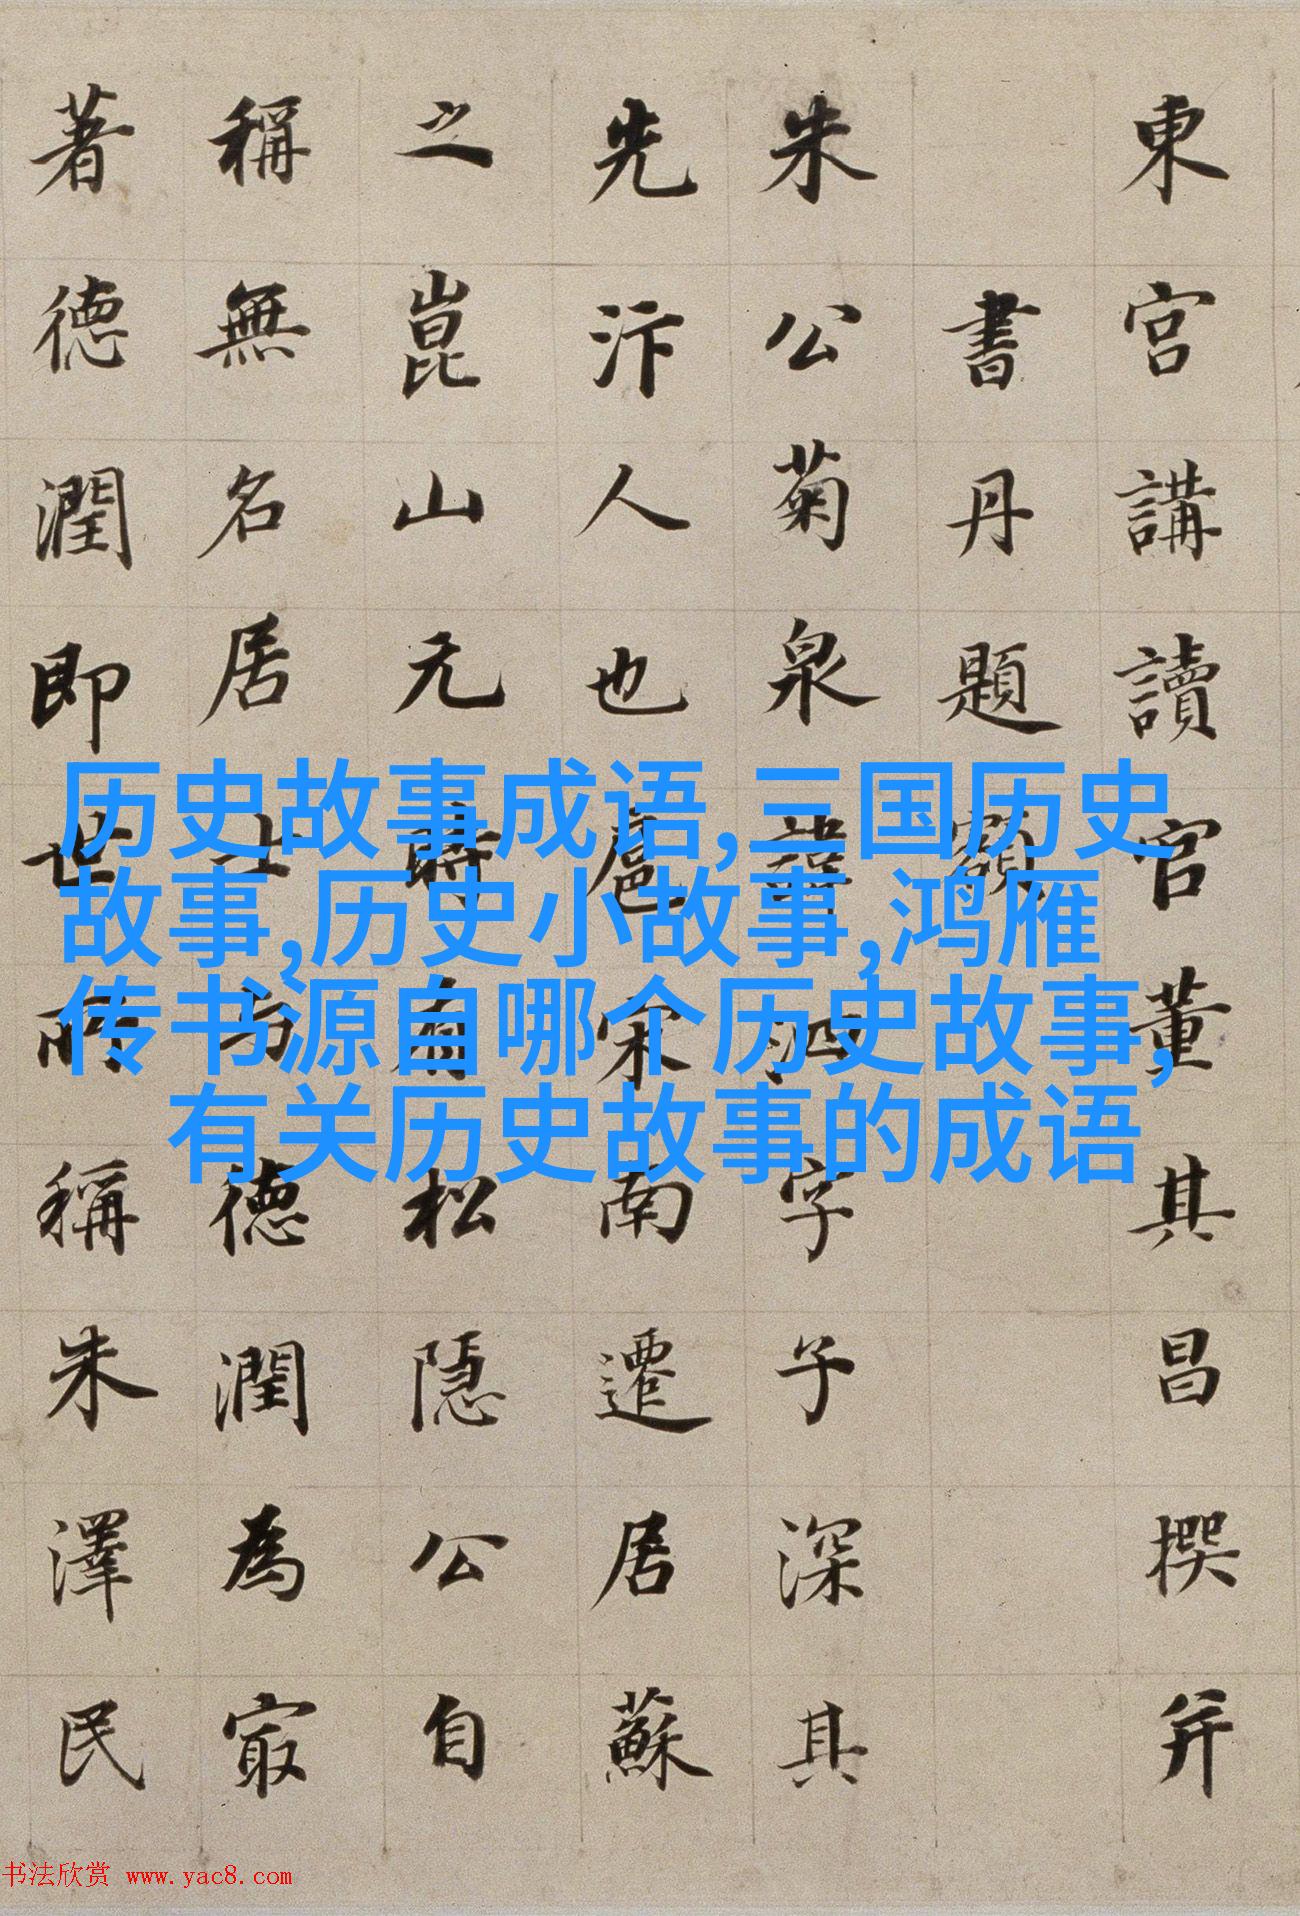 東宮講讀官董其昌撰并
書丹題額
朱公菊泉諱泗字子深其
先汴人也扈宋南遷居蘇
之崑山元時有松隱公自
稱無名居士与德潤為冣
著德潤即世所稱朱澤民
历史故事成语,三国历史
故事,历史小故事,鸿雁
传书源自哪个历史故事,
有关历史故事的成语
书法欣赏 www.yac8.com